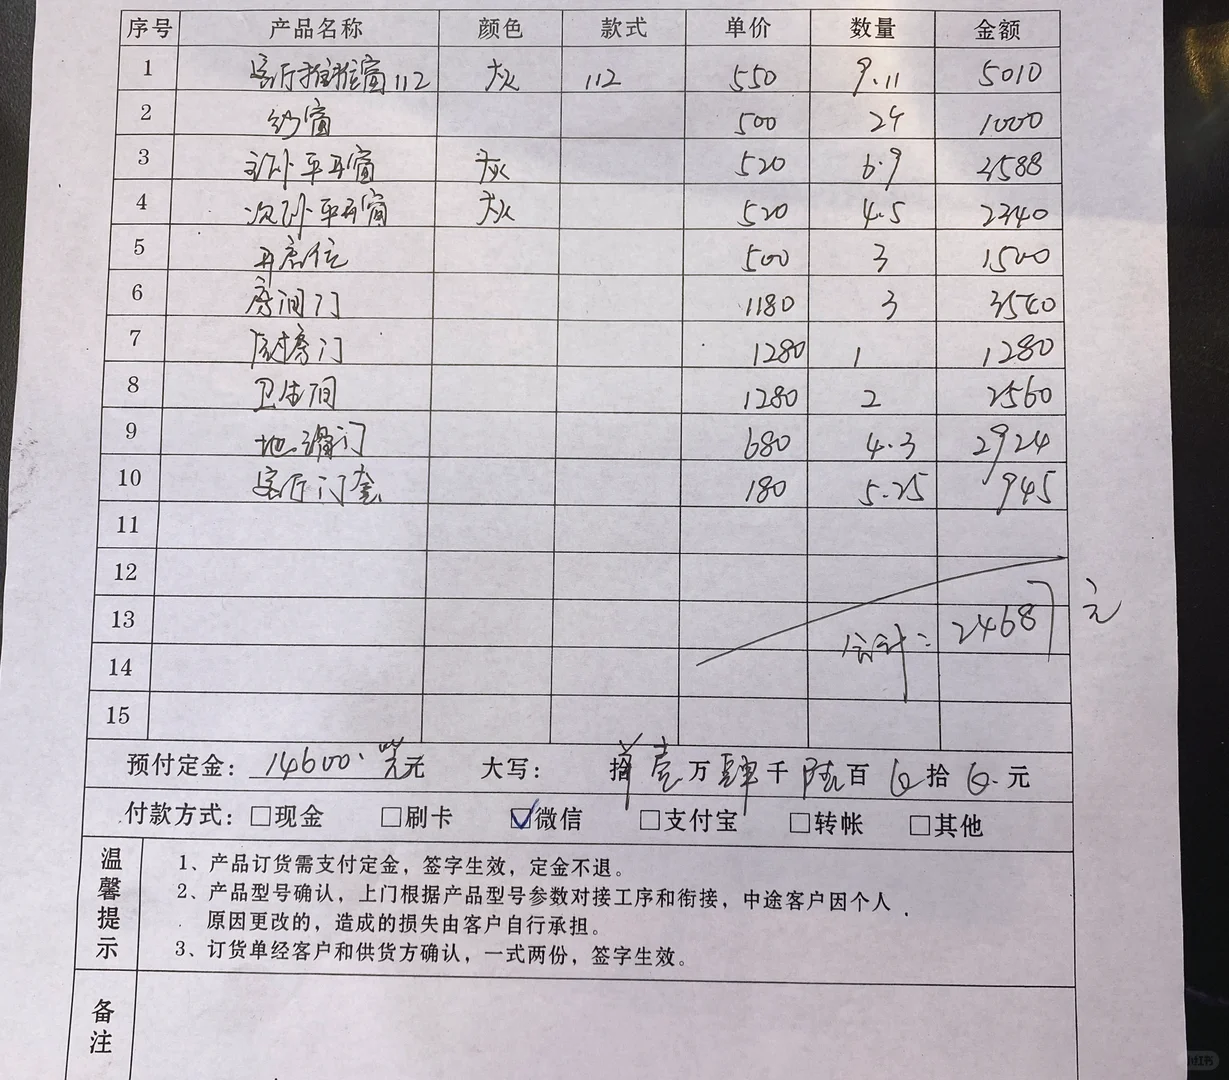 序号 产品名称 颜色 款式 单价 数量 金额
1 客厅推拉窗112 灰 112 550 9.11 5010
2 纱窗 500 2个 1000
3 主卧平开窗 灰 520 6.9 3588
4 次卧平开窗 灰 520 4.5 2340
5 开启位 500 3 1500
6 房间门 1180 3 3540
7 厨房门 1280 1 1280
8 卫生间 1280 2 2560
9 地弹门 680 4.3 2924
10 客厅门套 180 5.25 945
11
12
13 合计: 24687元
14
15
预付定金: 14600.元 大写: 拾壹万肆千陆百 拾 元
付款方式: □现金 □刷卡 ☑微信 □支付宝 □转帐 □其他
温馨提示
1、产品订货需支付定金，签字生效，定金不退。
2、产品型号确认，上门根据产品型号参数对接工序和衔接，中途客户因个人
原因更改的，造成的损失由客户自行承担。
3、订货单经客户和供货方确认，一式两份，签字生效。
备注
小红书